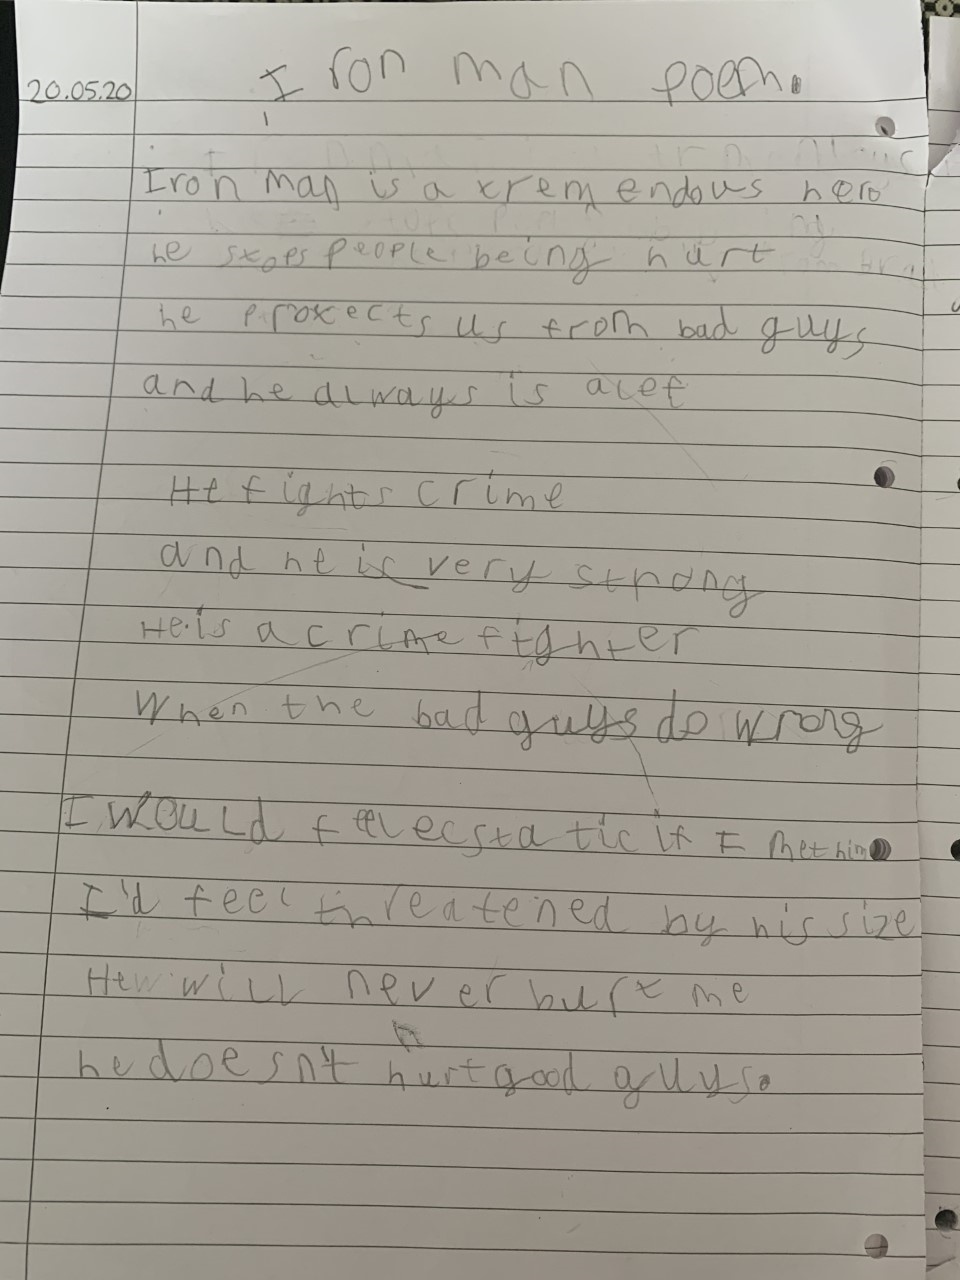 20.05.20
Iron man poem.
Iron Man is a tremendous hero
he stops people being hurt
he protects us from bad guys
and he always is alet
He fights crime
and he is very strong
He is a crime fighter
When the bad guys do wrong
I would feel ecstatic if I met him
I'd feel threatened by his size
He will never hurt me
he doesn't hurt good guys.